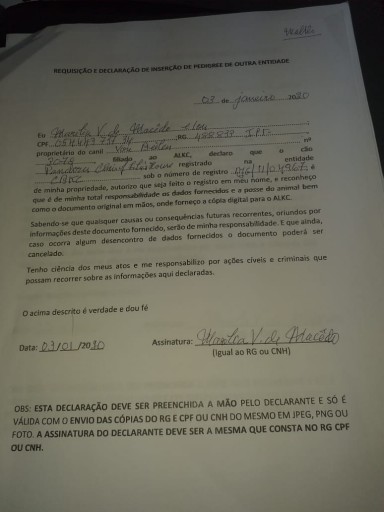 REQUISIÇÃO E DECLARAÇÃO DE INSERÇÃO DE PEDIGREE DE OUTRA ENTIDADE
03 de janeiro 2020
Eu Marilia V. de Macêdo
CPF RG
proprietário do canil nº
filiado ao ALKC, declaro que o cão
registrado na entidade
CBKC sob o número de registro é
de minha propriedade, autorizo que seja feito o registro em meu nome, e reconheço
que é de minha total responsabilidade os dados fornecidos e a posse do animal bem
como o documento original em mãos, onde forneço a cópia digital para o ALKC.
Sabendo-se que quaisquer causas ou consequências futuras recorrentes, oriundos por
informações deste documento fornecido, serão de minha responsabilidade. E que ainda,
caso ocorra algum desencontro de dados fornecidos o documento poderá ser
cancelado.
Tenho ciência dos meus atos e me responsabilizo por ações cíveis e criminais que
possam recorrer sobre as informações aqui declaradas.
O acima descrito é verdade e dou fé
Data: 03/01/2020 Assinatura: Marilia V. de Macêdo
(Igual ao RG ou CNH)
OBS: ESTA DECLARAÇÃO DEVE SER PREENCHIDA A MÃO PELO DECLARANTE E SÓ É
VÁLIDA COM O ENVIO DAS CÓPIAS DO RG E CPF OU CNH DO MESMO EM JPEG, PNG OU
FOTO. A ASSINATURA DO DECLARANTE DEVE SER A MESMA QUE CONSTA NO RG CPF
OU CNH.